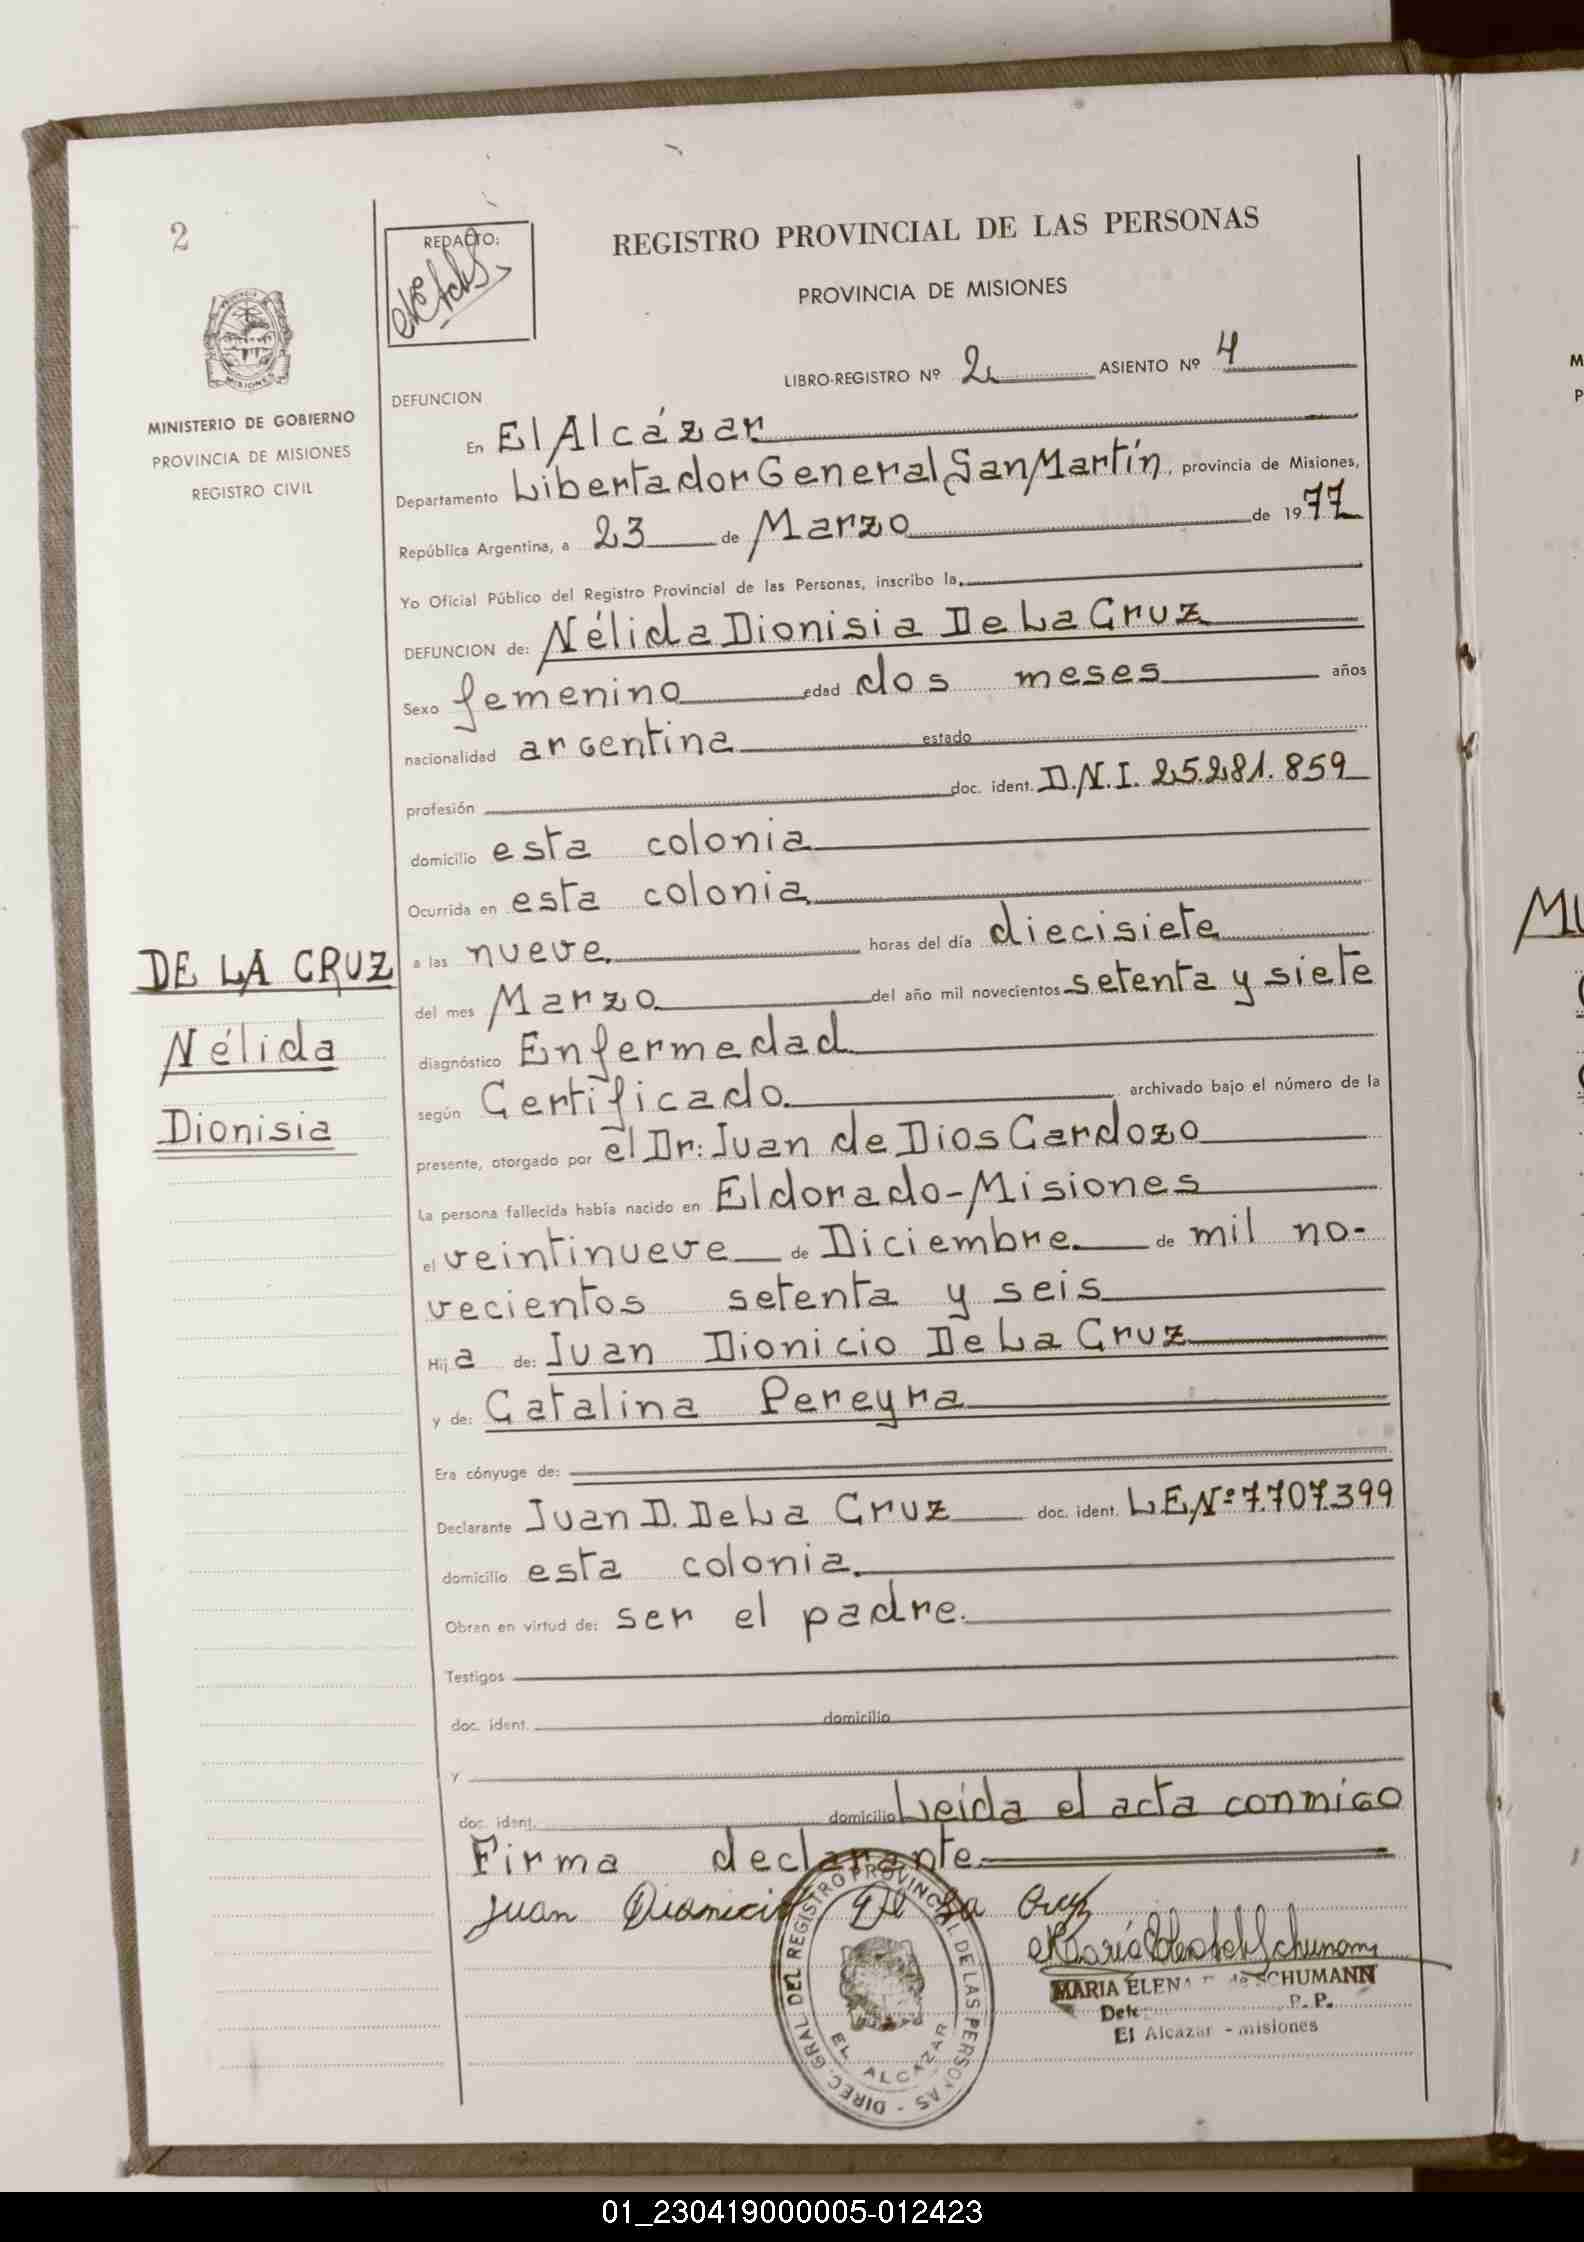 2
REDACTO:
REGISTRO PROVINCIAL DE LAS PERSONAS
PROVINCIA DE MISIONES
LIBRO-REGISTRO Nº 2 ASIENTO Nº 4
PROVINCIA
MISIONES
MINISTERIO DE GOBIERNO
PROVINCIA DE MISIONES
REGISTRO CIVIL
DEFUNCION
En El Alcázar
Departamento Libertador General San Martín, provincia de Misiones,
República Argentina, a 23 de Marzo de 1977
Yo Oficial Público del Registro Provincial de las Personas, inscribo la
DEFUNCION de: Nélida Dionisia De La Cruz
Sexo femenino edad dos meses años
nacionalidad argentina estado
profesión doc. ident. D.N.I. 25.281.859
domicilio esta colonia
Ocurrida en esta colonia
a las nueve horas del día diecisiete
DE LA CRUZ
Nélida
Dionisia
del mes Marzo del año mil novecientos setenta y siete
diagnóstico Enfermedad
según Certificado archivado bajo el número de la
presente, otorgado por el Dr: Juan de Dios Cardozo
La persona fallecida había nacido en Eldorado-Misiones
el veintinueve de Diciembre de mil no-
vecientos setenta y seis
Hija de: Juan Dionicio De La Cruz
y de: Catalina Pereyra
Era cónyuge de:
Declarante Juan D. De La Cruz doc. ident. L.E.Nº 7.707.399
domicilio esta colonia
Obran en virtud de: ser el padre.
Testigos
doc. ident. domicilio
y
doc. ident. domicilio Leída el acta conmigo
Firma declarante
Juan Dionicio De La Cruz
MARIA ELENA de SCHUMANN
P. P.
El Alcazar - misiones
DIREC. GRAL DEL REGISTRO PROVINCIAL DE LAS PERSONAS
EL ALCAZAR
MU
M
P
01_230419000005-012423